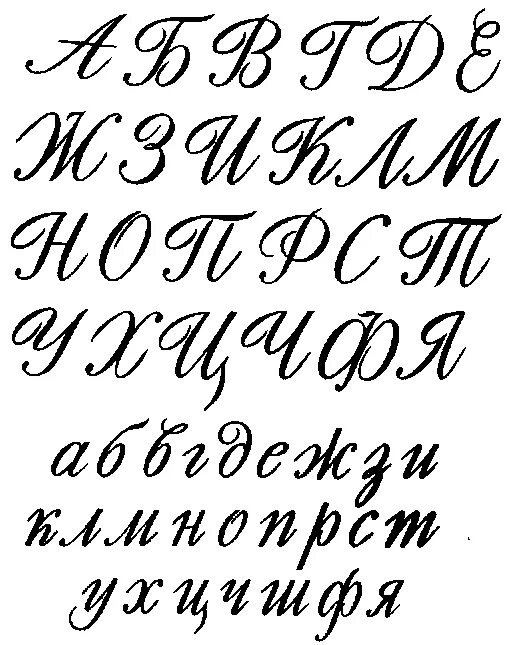 А Б В Г Д Е
Ж З И К Л М
Н О П Р С Т
У Х Ц Ч Ф Я
а б в г д е ж з и
к л м н о п р с т
у х ц ч ш ф я